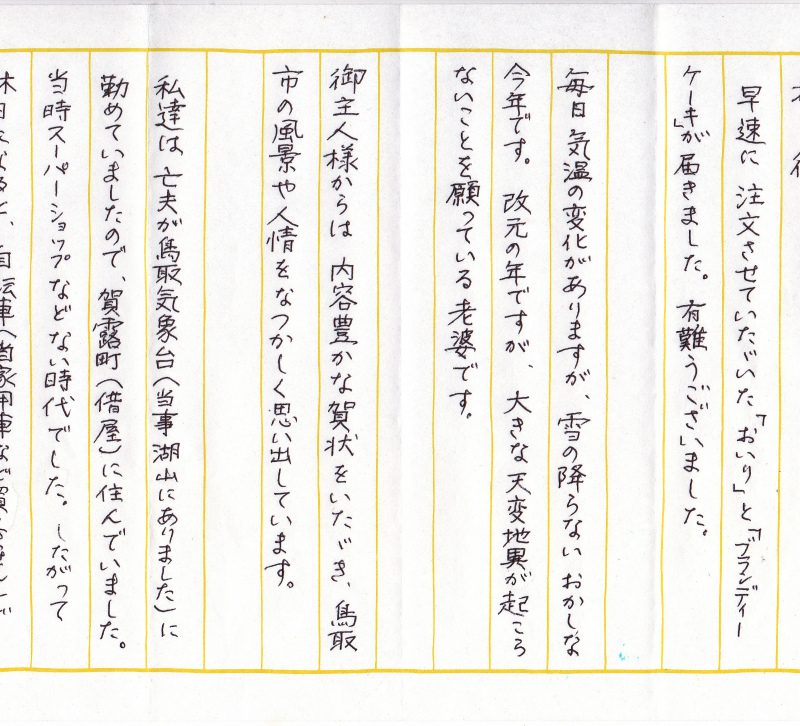 早速に 注文させていただいた「おいり」と「ブランディー
ケーキ」が届きました。有難うございました。
毎日 気温の変化がありますが、雪の降らない おかしな
今年です。 改元の年ですが、大きな天変地異が起こら
ないことを願っている老婆です。
御主人様からは 内容豊かな賀状をいただき、鳥取
市の風景や人情をなつかしく思い出しています。
私達は 亡夫が鳥取気象台(当事 湖山にありました)に
勤めていましたので、賀露町(借屋)に住んでいました。
当時スーパーショップなどない時代でした。したがって
休日になると、自転車(自家用車など買